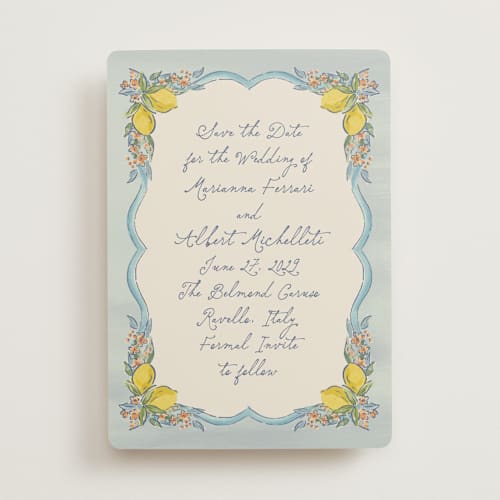 Save the Date
for the Wedding of
Marianna Ferrari
and
Albert Michelleti
June 27, 2029
The Belmond Caruso
Ravello, Italy
Formal Invite
to follow